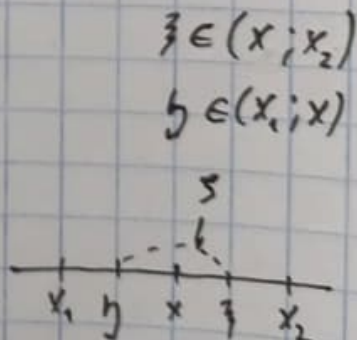 ξ ∈ (x ; x₂)
η ∈ (x₁ ; x)
ζ
x₁ η x ξ x₂